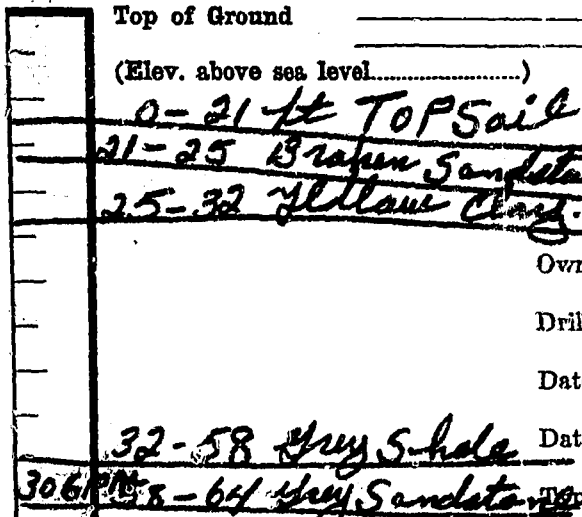 Top of Ground
(Elev. above sea level....................)
0-21 ft TOPSoil
21-25 Brown Sandsto
25-32 Yellow Clay.
Own
Dril
Dat
32-58 Grey Shale Dat
30 GPM 58-64 Grey Sandstone